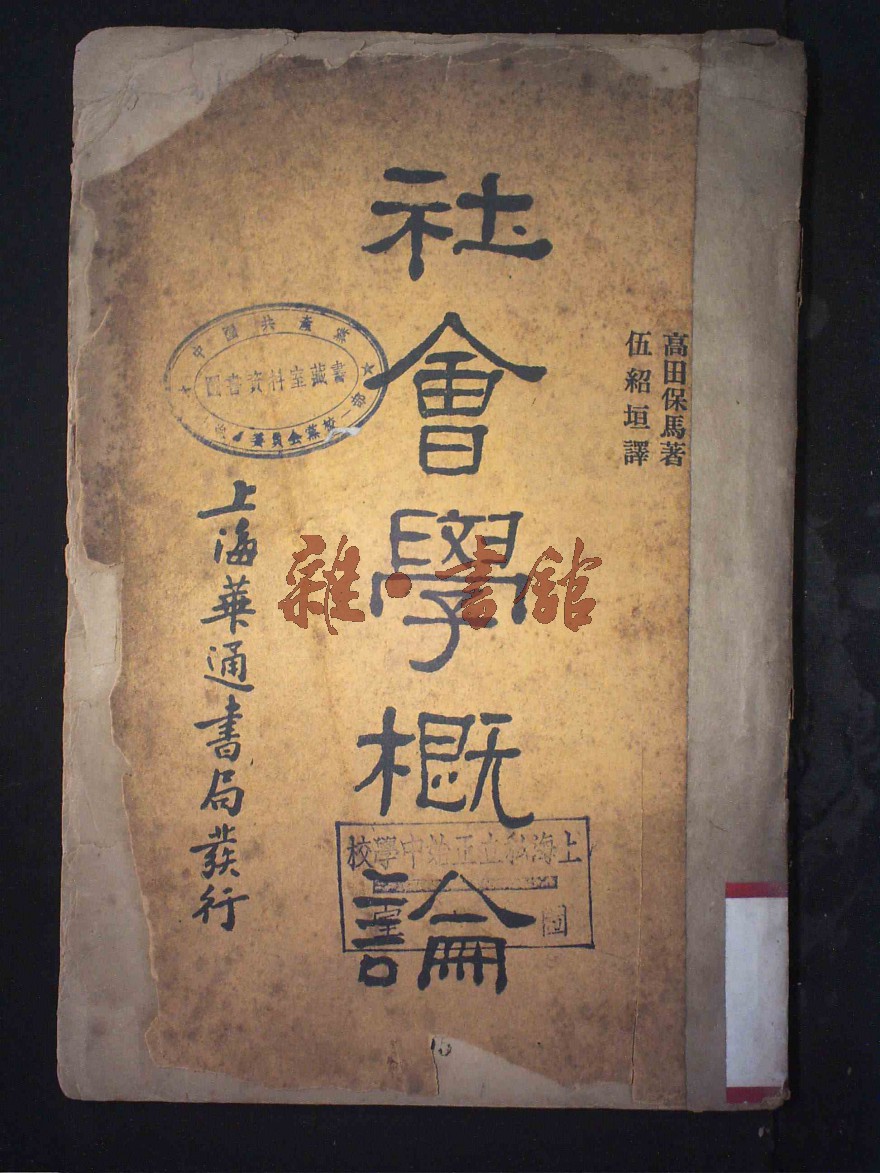 高田保馬著
伍紹垣譯
社會學概論
上海華通書局發行
中國共產黨
圖書資料室藏書
委員會黨校
上海私立正始中學校
圖
室
雜·書館